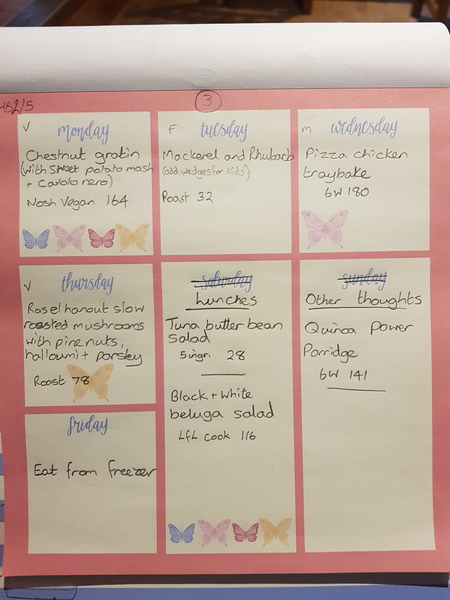 2/5
3
V
monday
Chestnut gratin
(with sweet potato mash
+ cavolo nero)
Nosh Vegan 164
F
tuesday
Mackerel and Rhubarb
(add wedges for kids)
Roast 32
M
wednesday
Pizza chicken
traybake
6W 180
V
thursday
Ras el hanout slow
roasted mushrooms
with pine nuts,
halloumi + parsley
Roast 78
friday
Eat from freezer
saturday
Lunches
Tuna butter bean
salad
5 ingr. 28
Black + White
beluga salad
LfL Cook 116
sunday
Other thoughts
Quinoa Power
Porridge
6W 141